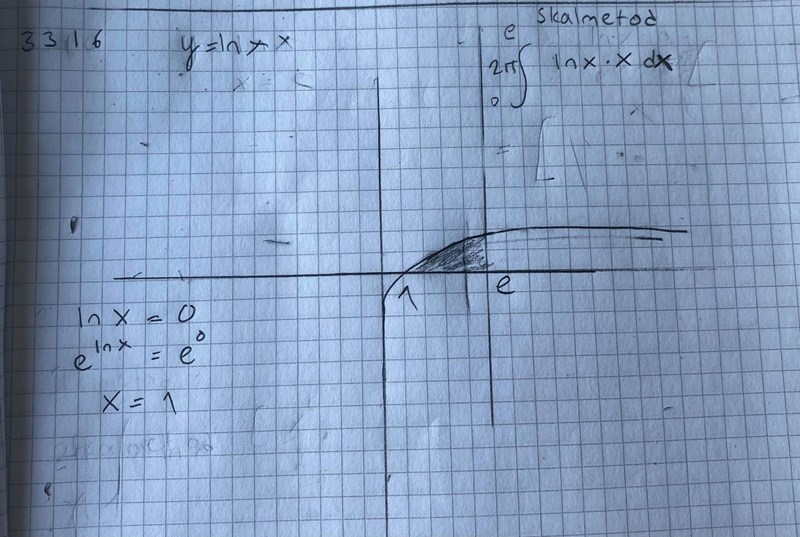 3316
y = ln x
Skalmetod
e
2π∫ ln x · x dx
0
= [
1
e
ln x = 0
e^ln x = e^0
x = 1